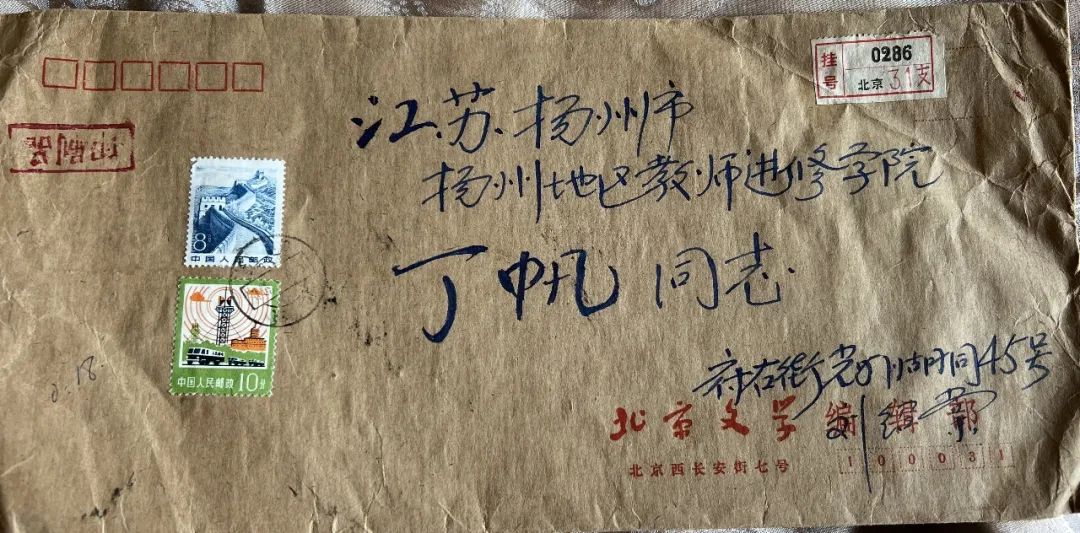 挂号 0286
北京 31支
印刷品
江苏扬州市
扬州地区教师进修学院
丁帆同志
8分
中国人民邮政
中国人民邮政 10分
府右街 胡同45号
北京文学编辑部
北京西长安街七号
100031